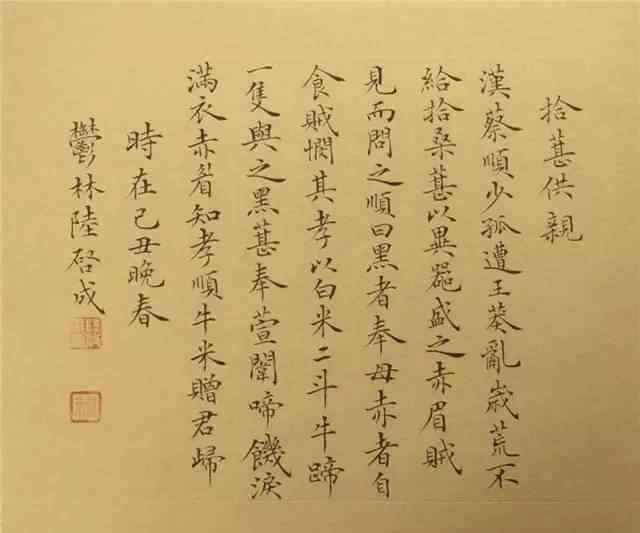 拾葚供親
漢蔡順少孤遭王葵亂歲荒不
給拾桑葚以異器盛之赤眉賊
見而問之順曰黑者奉母赤者自
食賊憫其孝以白米二斗牛蹄
一隻與之黑葚奉萱闈啼饑淚
滿衣赤眉知孝順牛米贈君歸
時在己丑晚春
鬱林陸啓成